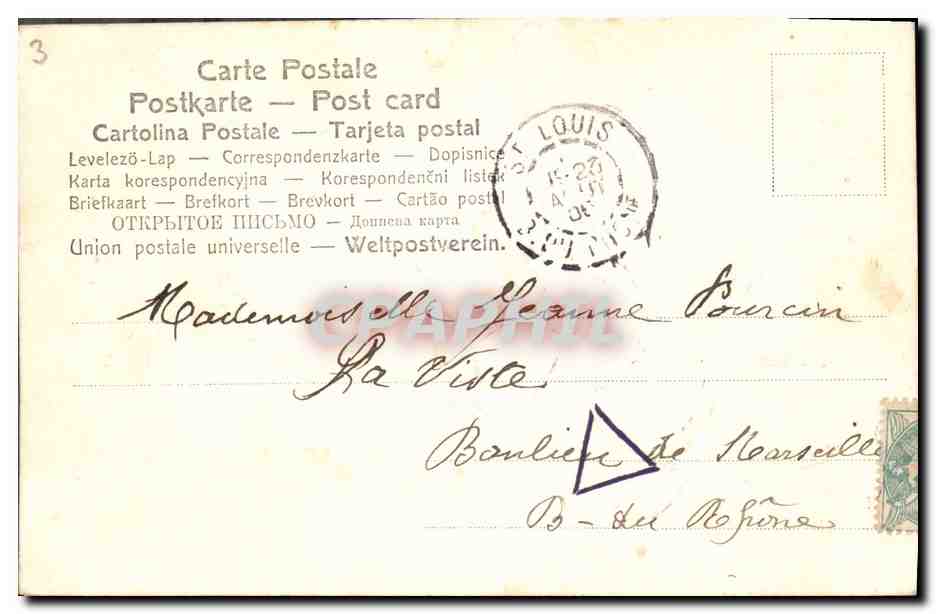 3
Carte Postale
Postkarte — Post card
Cartolina Postale — Tarjeta postal
Levelezö-Lap — Correspondenzkarte — Dopisnice
Karta korespondencyjna — Korespondenčni listek
Briefkaart — Brefkort — Brevkort — Cartão postal
ОТКРЫТОЕ ПИСЬМО — Дописна карта
Union postale universelle — Weltpostverein.
ST LOUIS
CPAPHIL
Mademoiselle Jeanne Pourcin
La Viste
Banlieu de Marseille
B-du Rhône